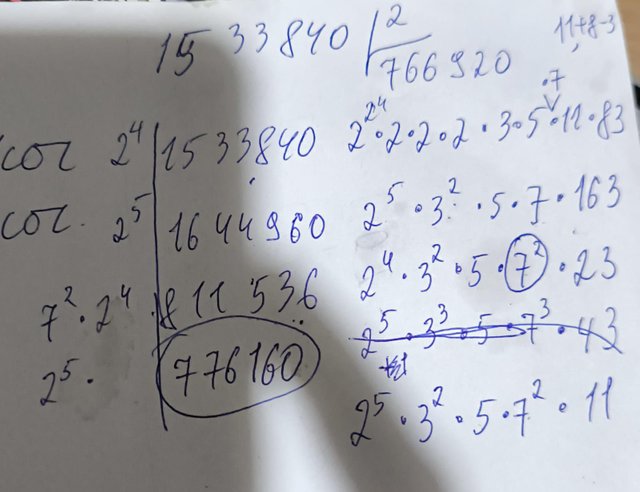 15 33840 | 2
766920
11+8-3
·7
сог 2⁴ | 1533840 2²⁴·2·2·2·3·5·11·83
сог. 2⁵ | 1644960 2⁵·3²·5·7·163
7²·2⁴ | 811536 2⁴·3²·5·7²·23
2⁵·3³·5·7³·43
2⁵· | 776160 2⁵·3²·5·7²·11